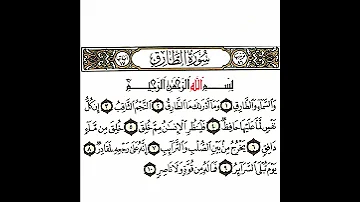 سُورَةُ الطَّارِقِ
بِسْمِ اللَّهِ الرَّحْمَٰنِ الرَّحِيمِ
وَالسَّمَاءِ وَالطَّارِقِ ١ وَمَا أَدْرَاكَ مَا الطَّارِقُ ٢ النَّجْمُ الثَّاقِبُ ٣ إِن كُلُّ
نَفْسٍ لَّمَّا عَلَيْهَا حَافِظٌ ٤ فَلْيَنظُرِ الْإِنسَانُ مِمَّ خُلِقَ ٥ خُلِقَ مِن مَّاءٍ
دَافِقٍ ٦ يَخْرُجُ مِن بَيْنِ الصُّلْبِ وَالتَّرَائِبِ ٧ إِنَّهُ عَلَىٰ رَجْعِهِ لَقَادِرٌ ٨
يَوْمَ تُبْلَى السَّرَائِرُ ٩ فَمَا لَهُ مِن قُوَّةٍ وَلَا نَاصِرٍ ١٠